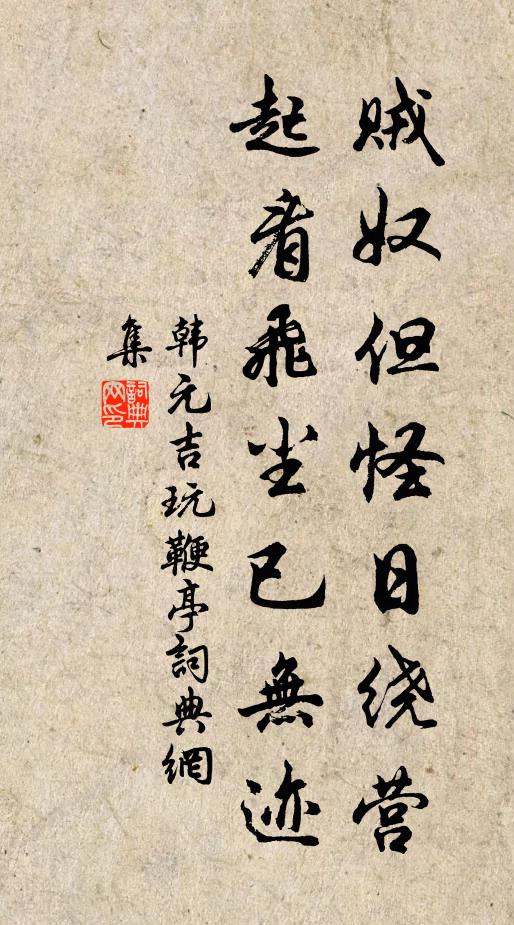 贼奴但怪日绕营
起看飛尘已無迹
韩元吉玩鞭亭詞典網
集
詞典网印